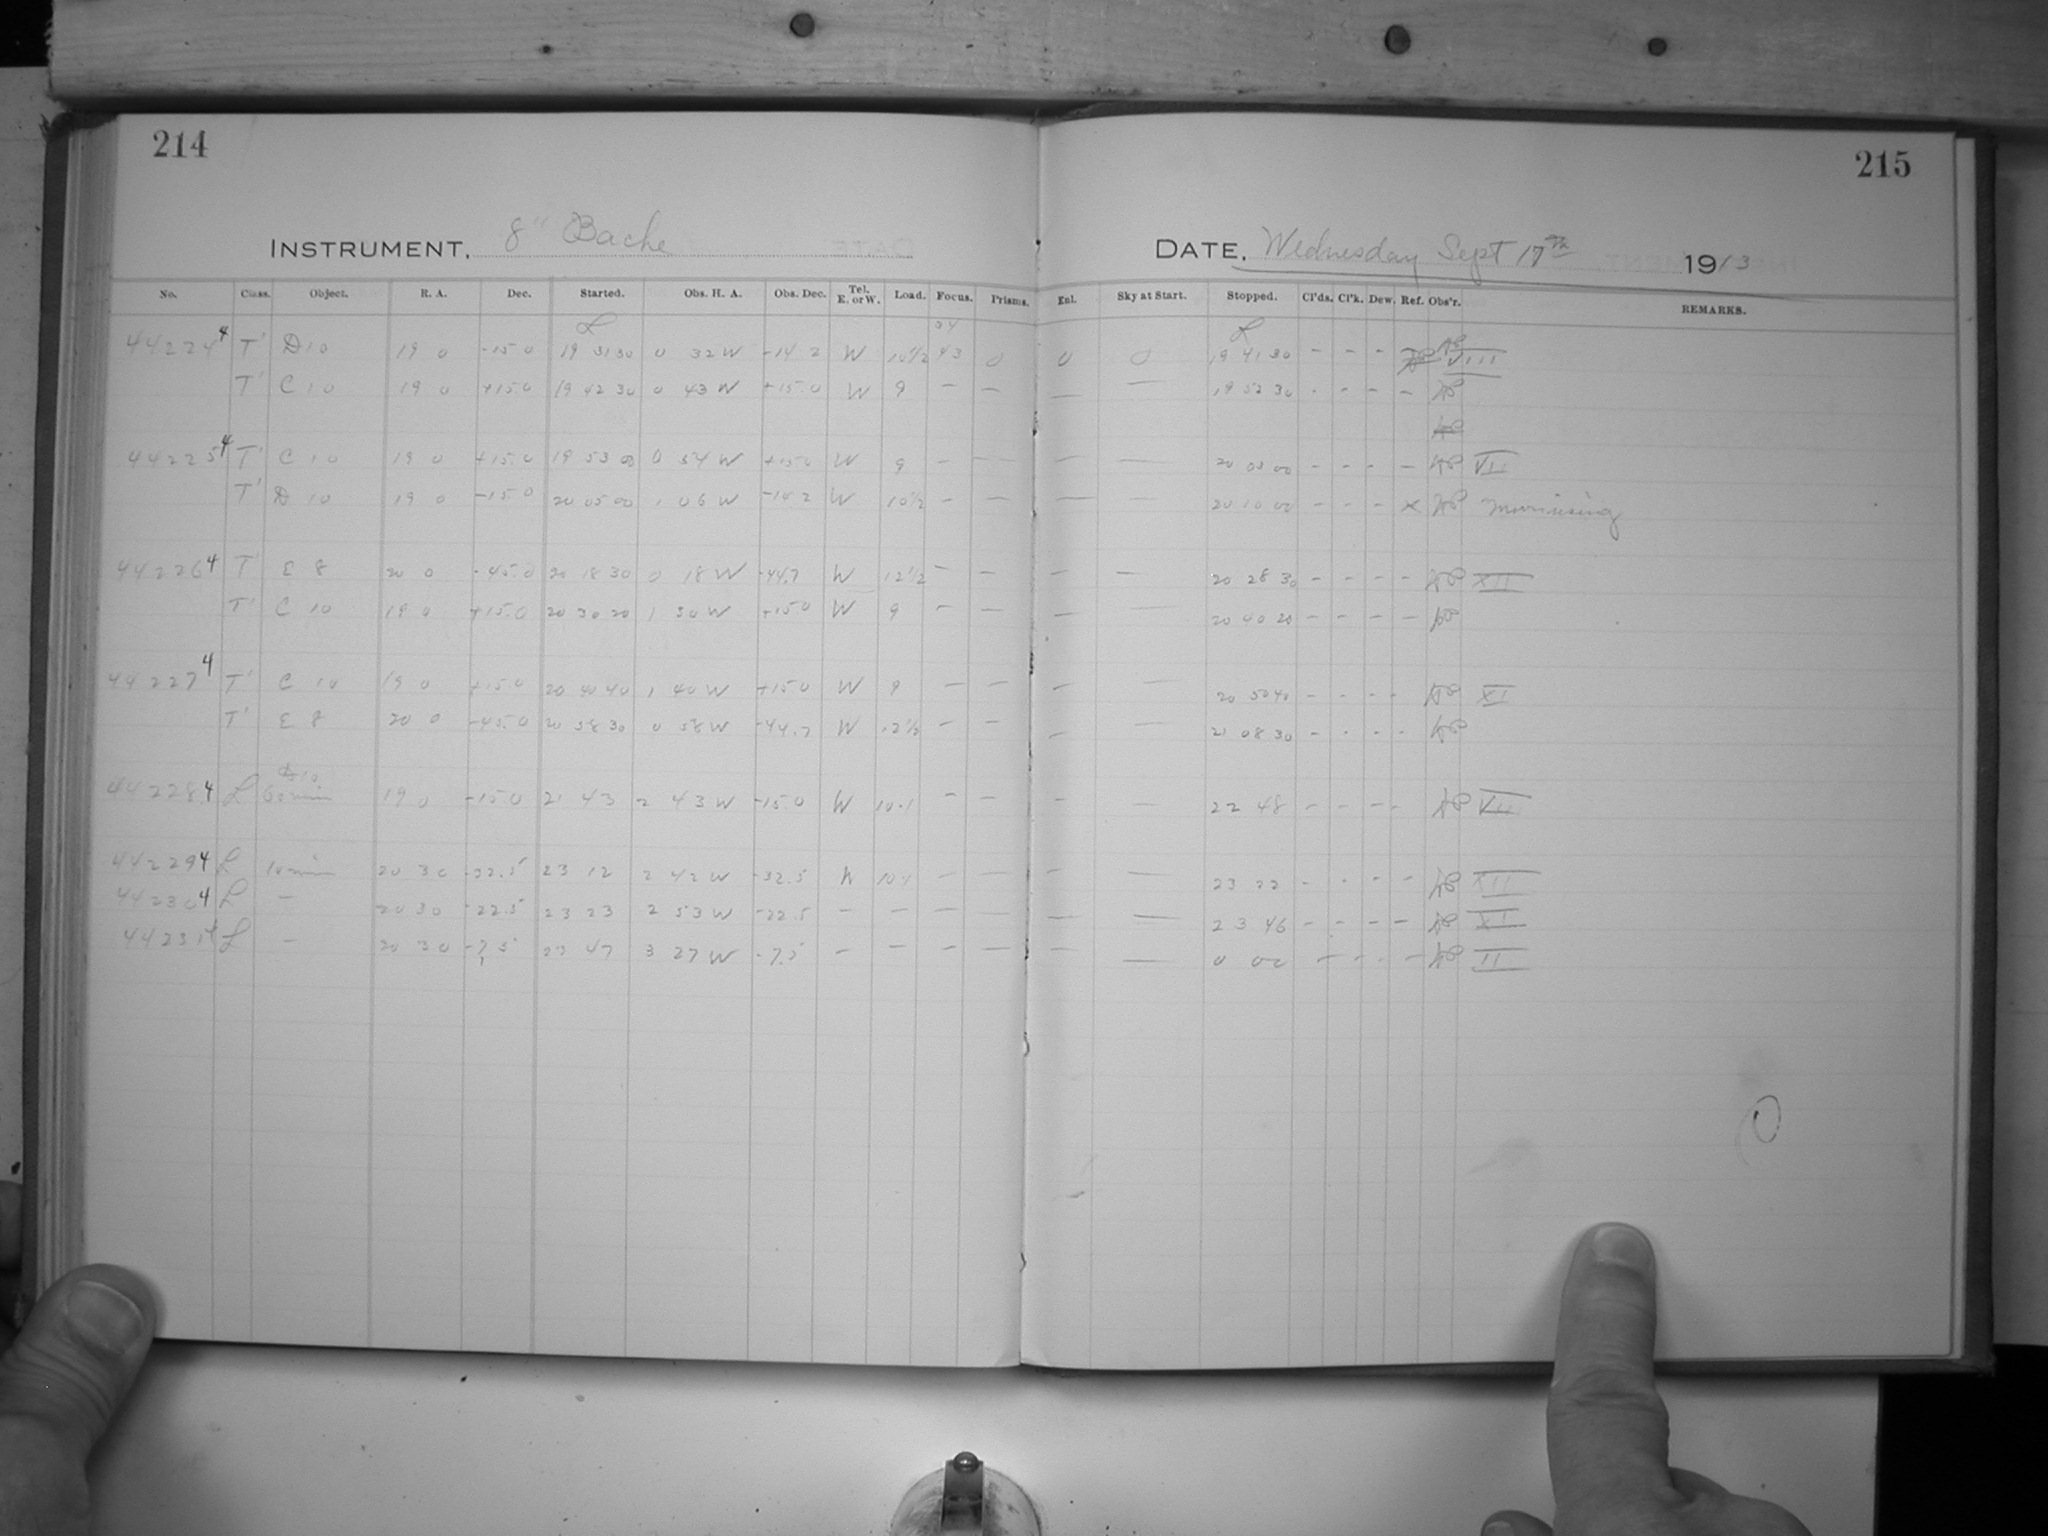 214
215
INSTRUMENT. 8" Bache
DATE. Wednesday Sept 17th 1913
No. Class. Object. R. A. Dec. Started. Obs. H. A. Obs. Dec. Tel. E. or W. Load. Focus. Prisms. Enl. Sky at Start. Stopped. Cl'ds. Cl'k. Dew. Ref. Obs'r. REMARKS.
44224 4 T' D 10 19 0 -15 0 19 31 30 0 32 W -14 2 W 10 1/2 43 0 0 0 19 41 30 - - - VIII
T' C 10 19 0 +15 0 19 42 30 0 43 W +15.0 W 9 - - - - 19 52 30 - - - -
44225 4 T' C 10 19 0 +15.0 19 53 00 0 54 W +15.0 W 9 - - - - 20 03 00 - - - - VII
T' D 10 19 0 -15 0 20 05 00 1 06 W -14 2 W 10 1/2 - - - - 20 10 00 - - - x
44226 4 T' E 8 20 0 -45.0 20 18 30 0 18 W -44.7 W 12 1/2 - - - - 20 28 30 - - - - XII
T' C 10 19 0 +15.0 20 30 20 1 30 W +15.0 W 9 - - - - 20 40 20 - - - -
44227 4 T' C 10 19 0 +15.0 20 40 40 1 40 W +15.0 W 9 - - - - 20 50 40 - - - - XI
T' E 8 20 0 -45.0 20 58 30 0 58 W -44.7 W 12 1/2 - - - - 21 08 30 - - - -
44228 4 L 60 min 19 0 -15 0 21 43 2 43 W -15.0 W 10.1 - - - - 22 48 - - - - VII
44229 4 L 10 min 20 30 -32.5 23 12 2 42 W -32.5 W 10.1 - - - - 23 22 - - - - XII
44230 4 L - 20 30 -22.5 23 23 2 53 W -22.5 - - - - - - 23 46 - - - - XI
44231 4 L - 20 30 -7.5 23 47 3 27 W -7.5 - - - - - - 0 02 - - - - II